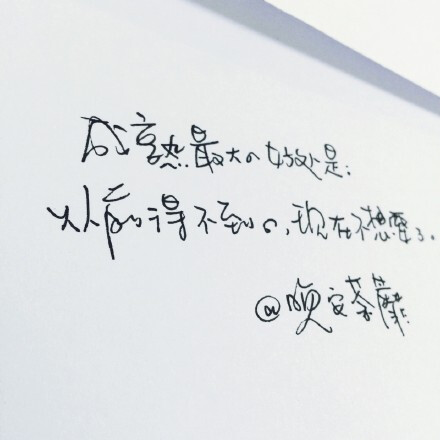 成熟最大の好处是：
从前得不到の，现在不想要了。
@晚安荼蘼